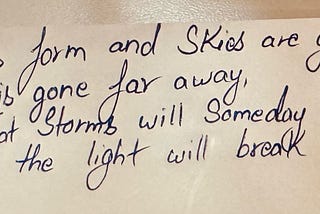 form and Skies are
gone far away,
Storms will Someday
the light will break